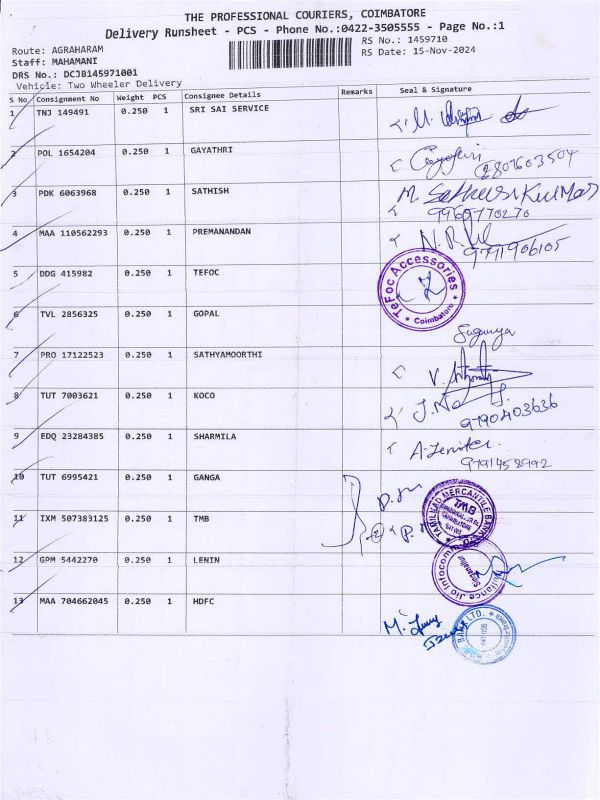 THE PROFESSIONAL COURIERS, COIMBATORE
Delivery Runsheet - PCS - Phone No.:0422-3505555 - Page No.:1
Route: AGRAHARAM
RS No.: 1459710
Staff: MAHAMANI
RS Date: 15-Nov-2024
DRS No.: DCJB145971001
Vehicle: Two Wheeler Delivery
S No Consignment No Weight PCS Consignee Details Remarks Seal & Signature
1 TNJ 149491 0.250 1 SRI SAI SERVICE
2 POL 1654204 0.250 1 GAYATHRI
Gayatri
2801603504
3 PDK 6063968 0.250 1 SATHISH
M. Sathusikumar
9969770270
4 MAA 110562293 0.250 1 PREMANANDAN
9791906105
5 DDG 415982 0.250 1 TEFOC
TeFoc Accessories
* Coimbatore *
6 TVL 2856325 0.250 1 GOPAL
Suganya
7 PRO 17122523 0.250 1 SATHYAMOORTHI
8 TUT 7003621 0.250 1 KOCO
9790403636
9 EDQ 23284385 0.250 1 SHARMILA
A. Jenifer
9791458992
10 TUT 6995421 0.250 1 GANGA
11 IXM 507383125 0.250 1 TMB
TAMILNAD MERCANTILE BANK
TMB
12 GPM 5442270 0.250 1 LENIN
Reliance Jio Infocomm
13 MAA 704662045 0.250 1 HDFC
BANK LTD.